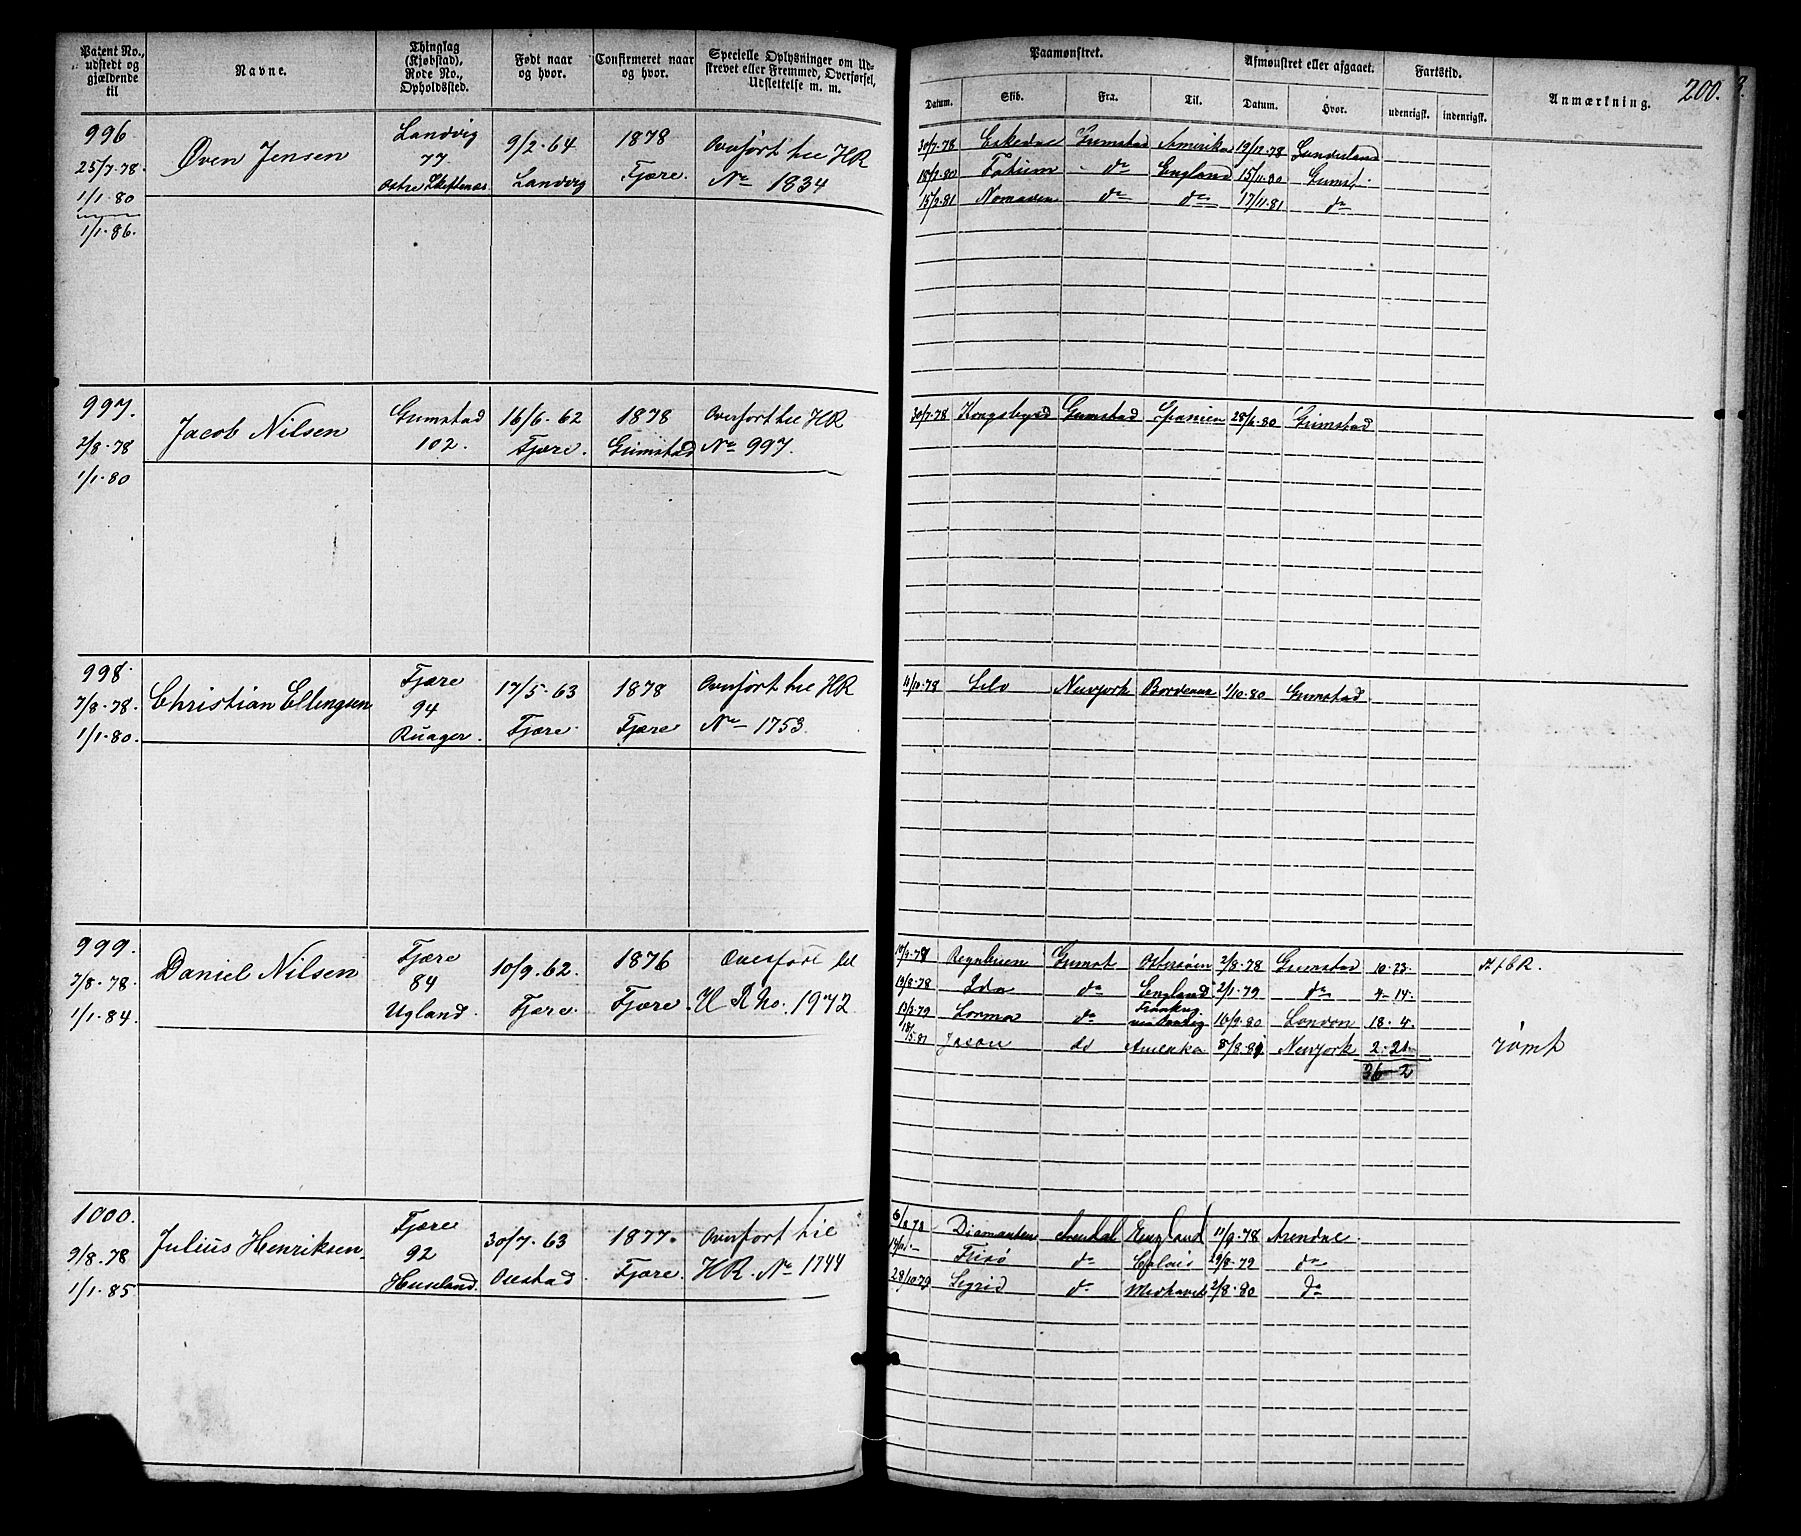 Patent No., udstedt og gjældende til
Navne.
Thinglag (Kjøbstad), Rode No., Opholdssted.
Født naar og hvor.
Confirmeret naar og hvor.
Specielle Oplysninger om Udstrevet eller Fremmed, Overførsel, Udslettelse m. m.
Paamønstret.
Afmønstret eller afgaaet.
Fartstid.
Anmærkning.
200.
Datum. Skib. Fra. Til. Datum. Hvor. udenrigsk. indenrigsk.
996 Landvig 9/2. 64 1878 Overført til HR
25/7.78. Øven Jensen 77 Landvig Fjære. No 1834
1/1.80 Østre
1/1.86.
30/7.78 Grimstad Amerika 19/12.78 Sunderland
Grimst. England 15/11.80
15/2.81 do do 17/11.81 do
997. Grimstad 16/6. 62 1878 Overført til HR
2/8.78 Jacob Nilsen 102. Fjære. Grimstad No 997.
1/1.80
30/7.78 Grimstad Spanien 28/6.80 Grimstad
998. Fjære 17/5. 63 1878 Overført til HR
7/8.78. Christian Ellingsen 94 Fjære. Fjære No 1753.
1/1.80. Ruager.
11/10.78 Newjork Bordeaux 1/10.80 Grimstad
999. Fjære 10/9. 62. 1876 Overført til
7/8.78. Daniel Nilsen 84 Fjære. Fjære. H R No. 1972
1/1.84. Ugland.
Grimst 2/8.78 Grimstad 10.23.
19/8.78 Ida do England 2/1.79 do 4.14.
do 10/9.80 London 18.4.
18/5.81 Jason do Amerika Newjork 2.21 rømt
36-2
1000. Fjære 30/7. 63 1877. Overført til
9/8.78 Julius Henriksen. 92 Fjære. HR. No 1744
1/1.85
Diamanten Arendal England 11/9.78 Arendal
Frisø do 29/8.79 do
28/10.79 Sigrid do 2/8.80 do